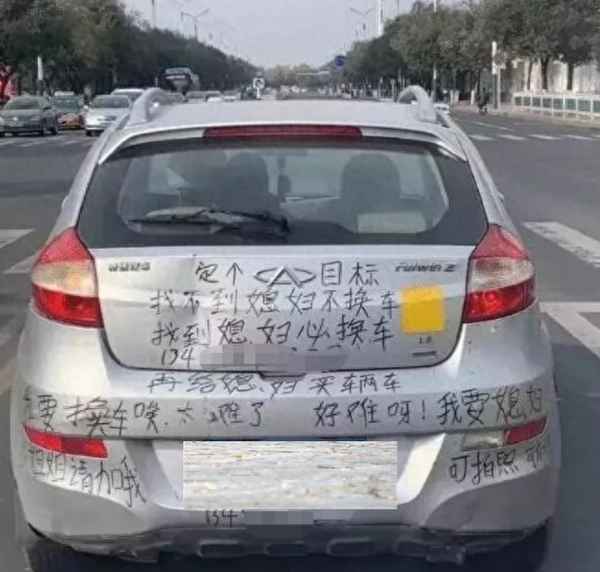 定个 目标 Fulwin 2
找不到媳妇不换车
找到媳妇必换车
1.5
134
再给媳妇买辆车
要换车噗.太难了 好难呀！我要媳妇
姐姐请加我 可拍照
134